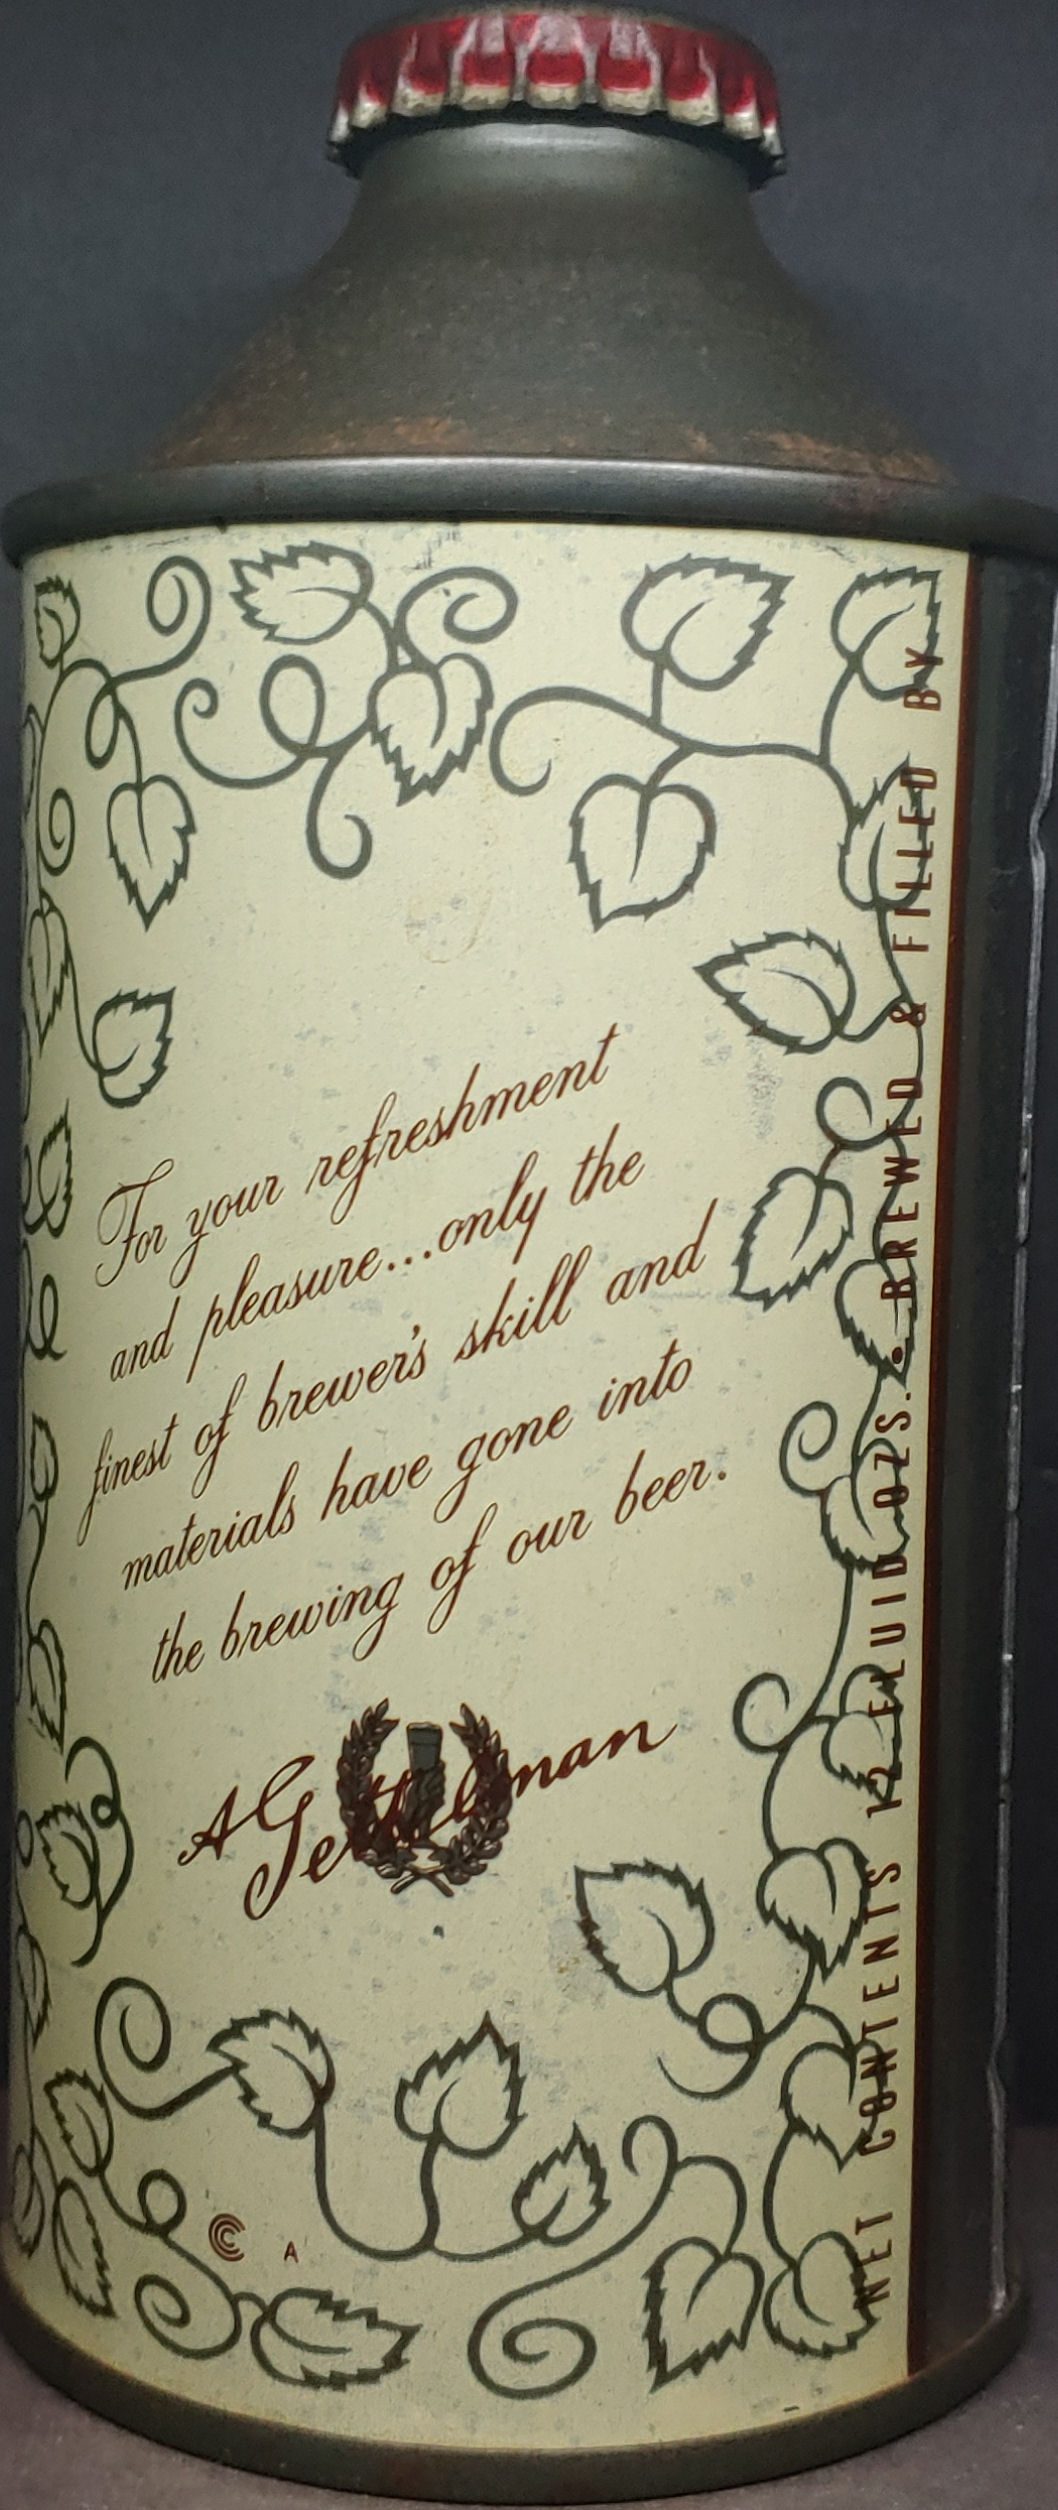 For your refreshment
and pleasure...only the
finest of brewer's skill and
materials have gone into
the brewing of our beer.
A Gettelman
CCC A
NET CONTENTS 12 FLUID OZS. • BREWED & FILLED BY